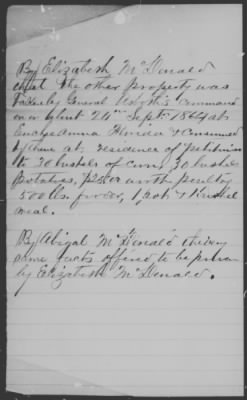 By Elizabeth McDonald
that the other property was
taken by General command
on or about 24th Sept 1864 at
Anna Florida & consumed
by them at residence of petitioner
to 20 bushels of corn, 30 bushels
potatoes, worth poultry
500 lbs. fodder, 1 & 1 bushel
meal.
By Abigal McDonald
same facts offered to be proven
by Elizabeth McDonald.